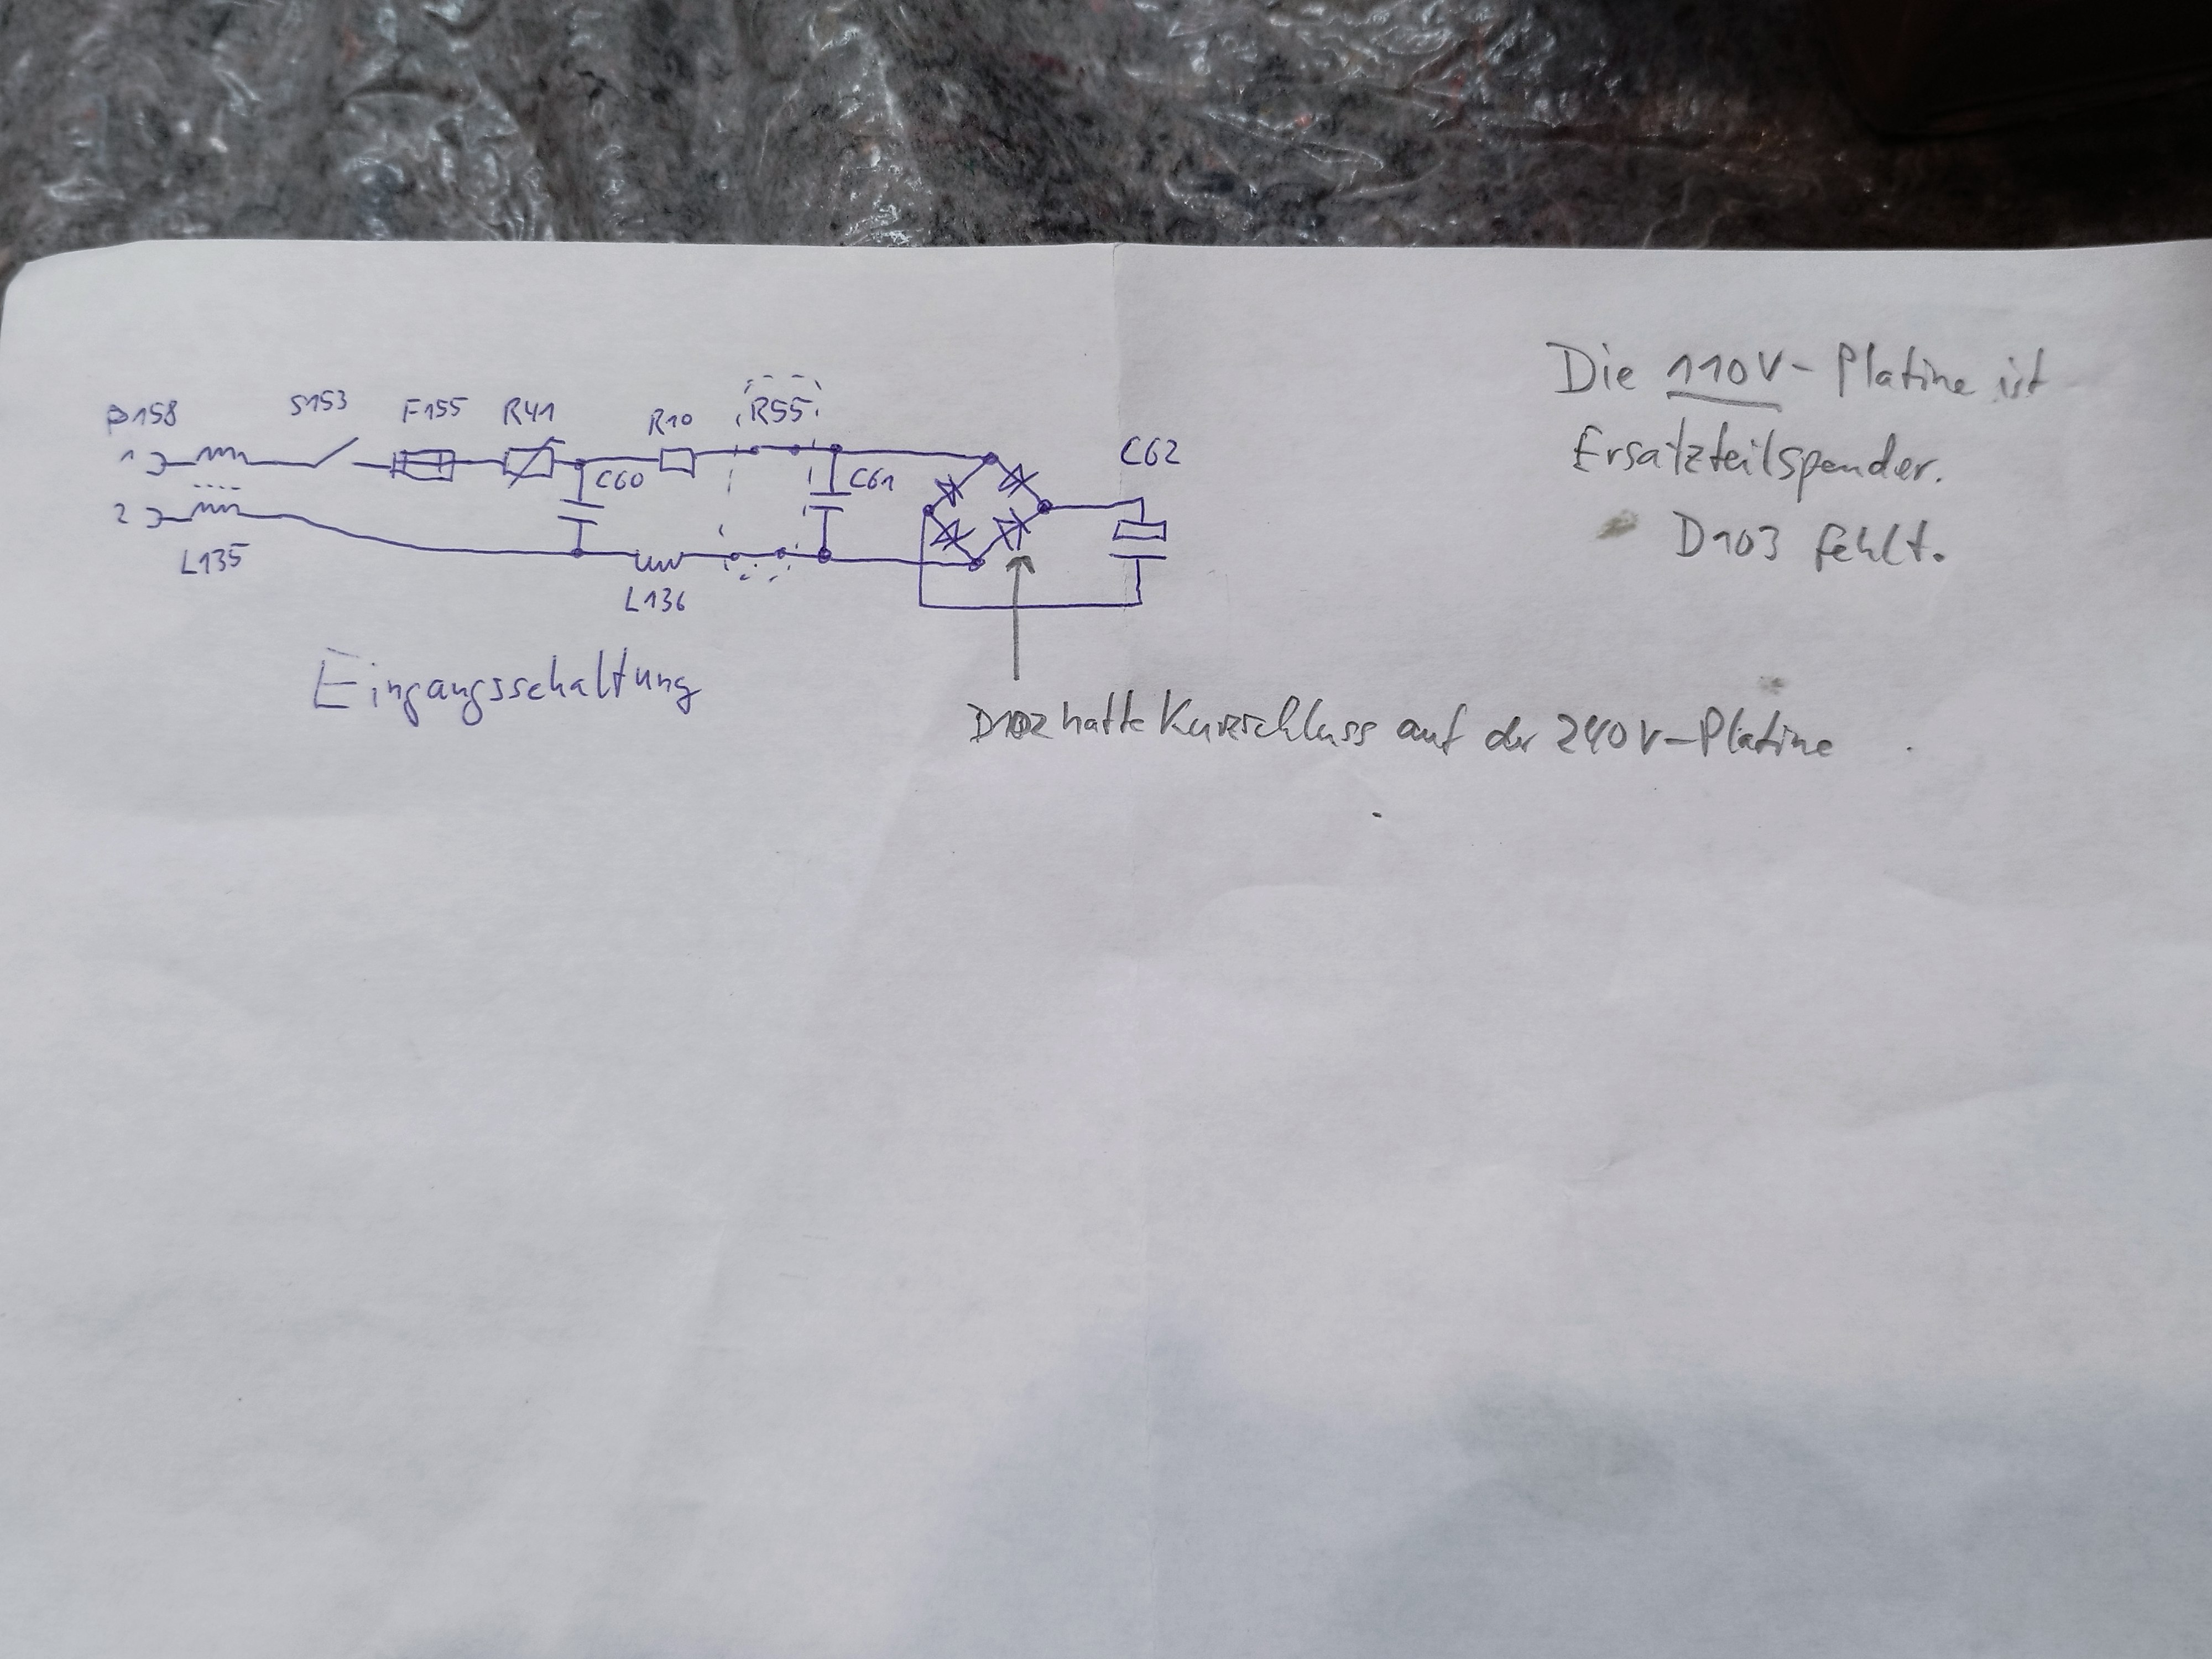 P158
S153
F155
R41
R10
R55
1
C60
C61
C62
2
L135
L136
Eingangsschaltung
Die 110V-Platine ist
Ersatzteilspender.
D103 fehlt.
D102 hatte Kurzschluss auf der 240V-Platine